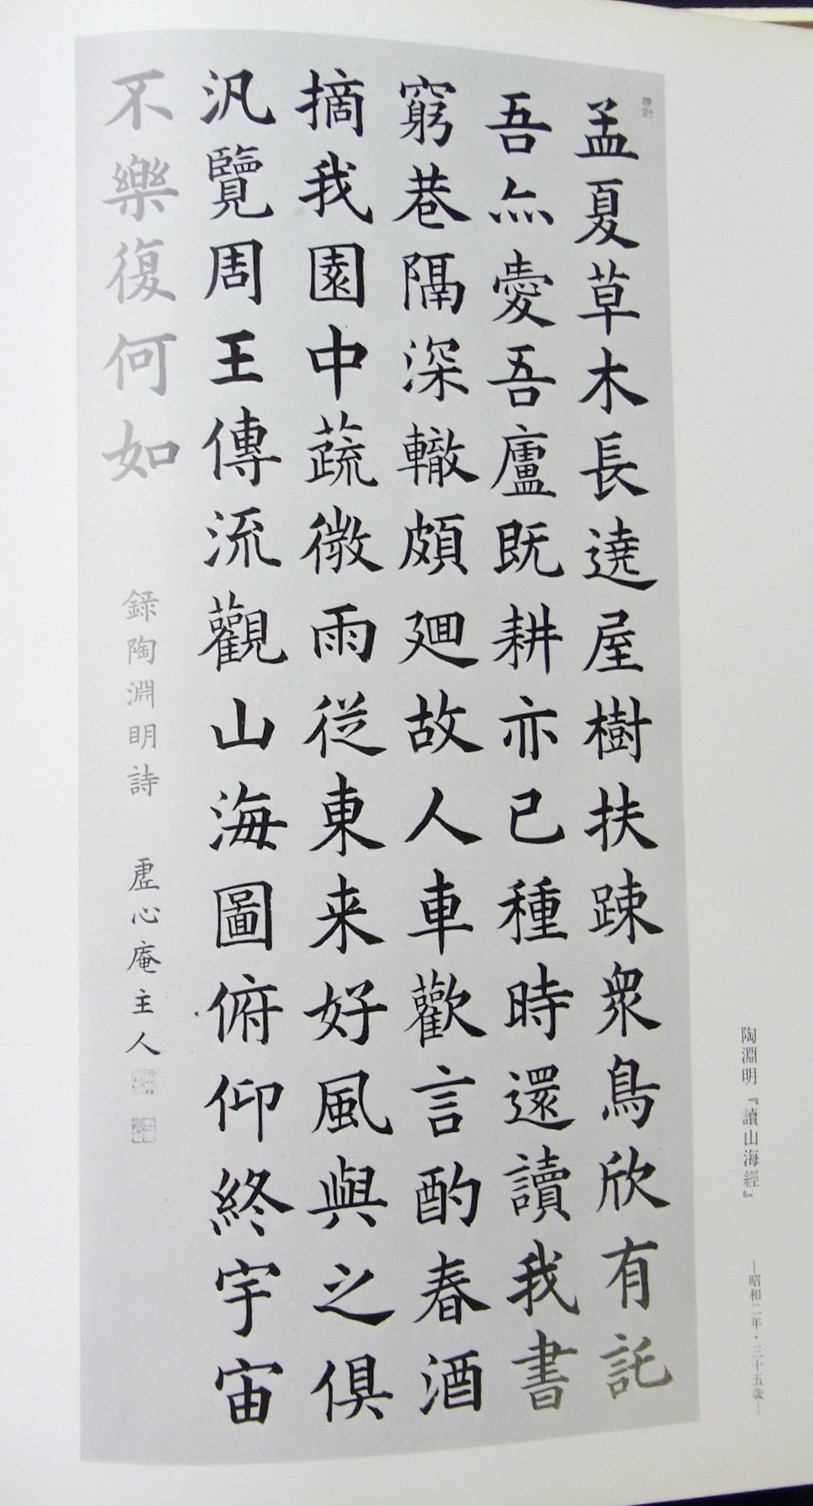 陶淵明『讀山海經』
―昭和二年・三十五歳―
孟夏草木長遶屋樹扶踈衆鳥欣有託
吾亦愛吾廬既耕亦已種時還讀我書
窮巷隔深轍頗廻故人車歡言酌春酒
摘我園中蔬微雨從東来好風與之俱
汎覽周王傳流觀山海圖俯仰終宇宙
不樂復何如
録陶淵明詩 虛心庵主人